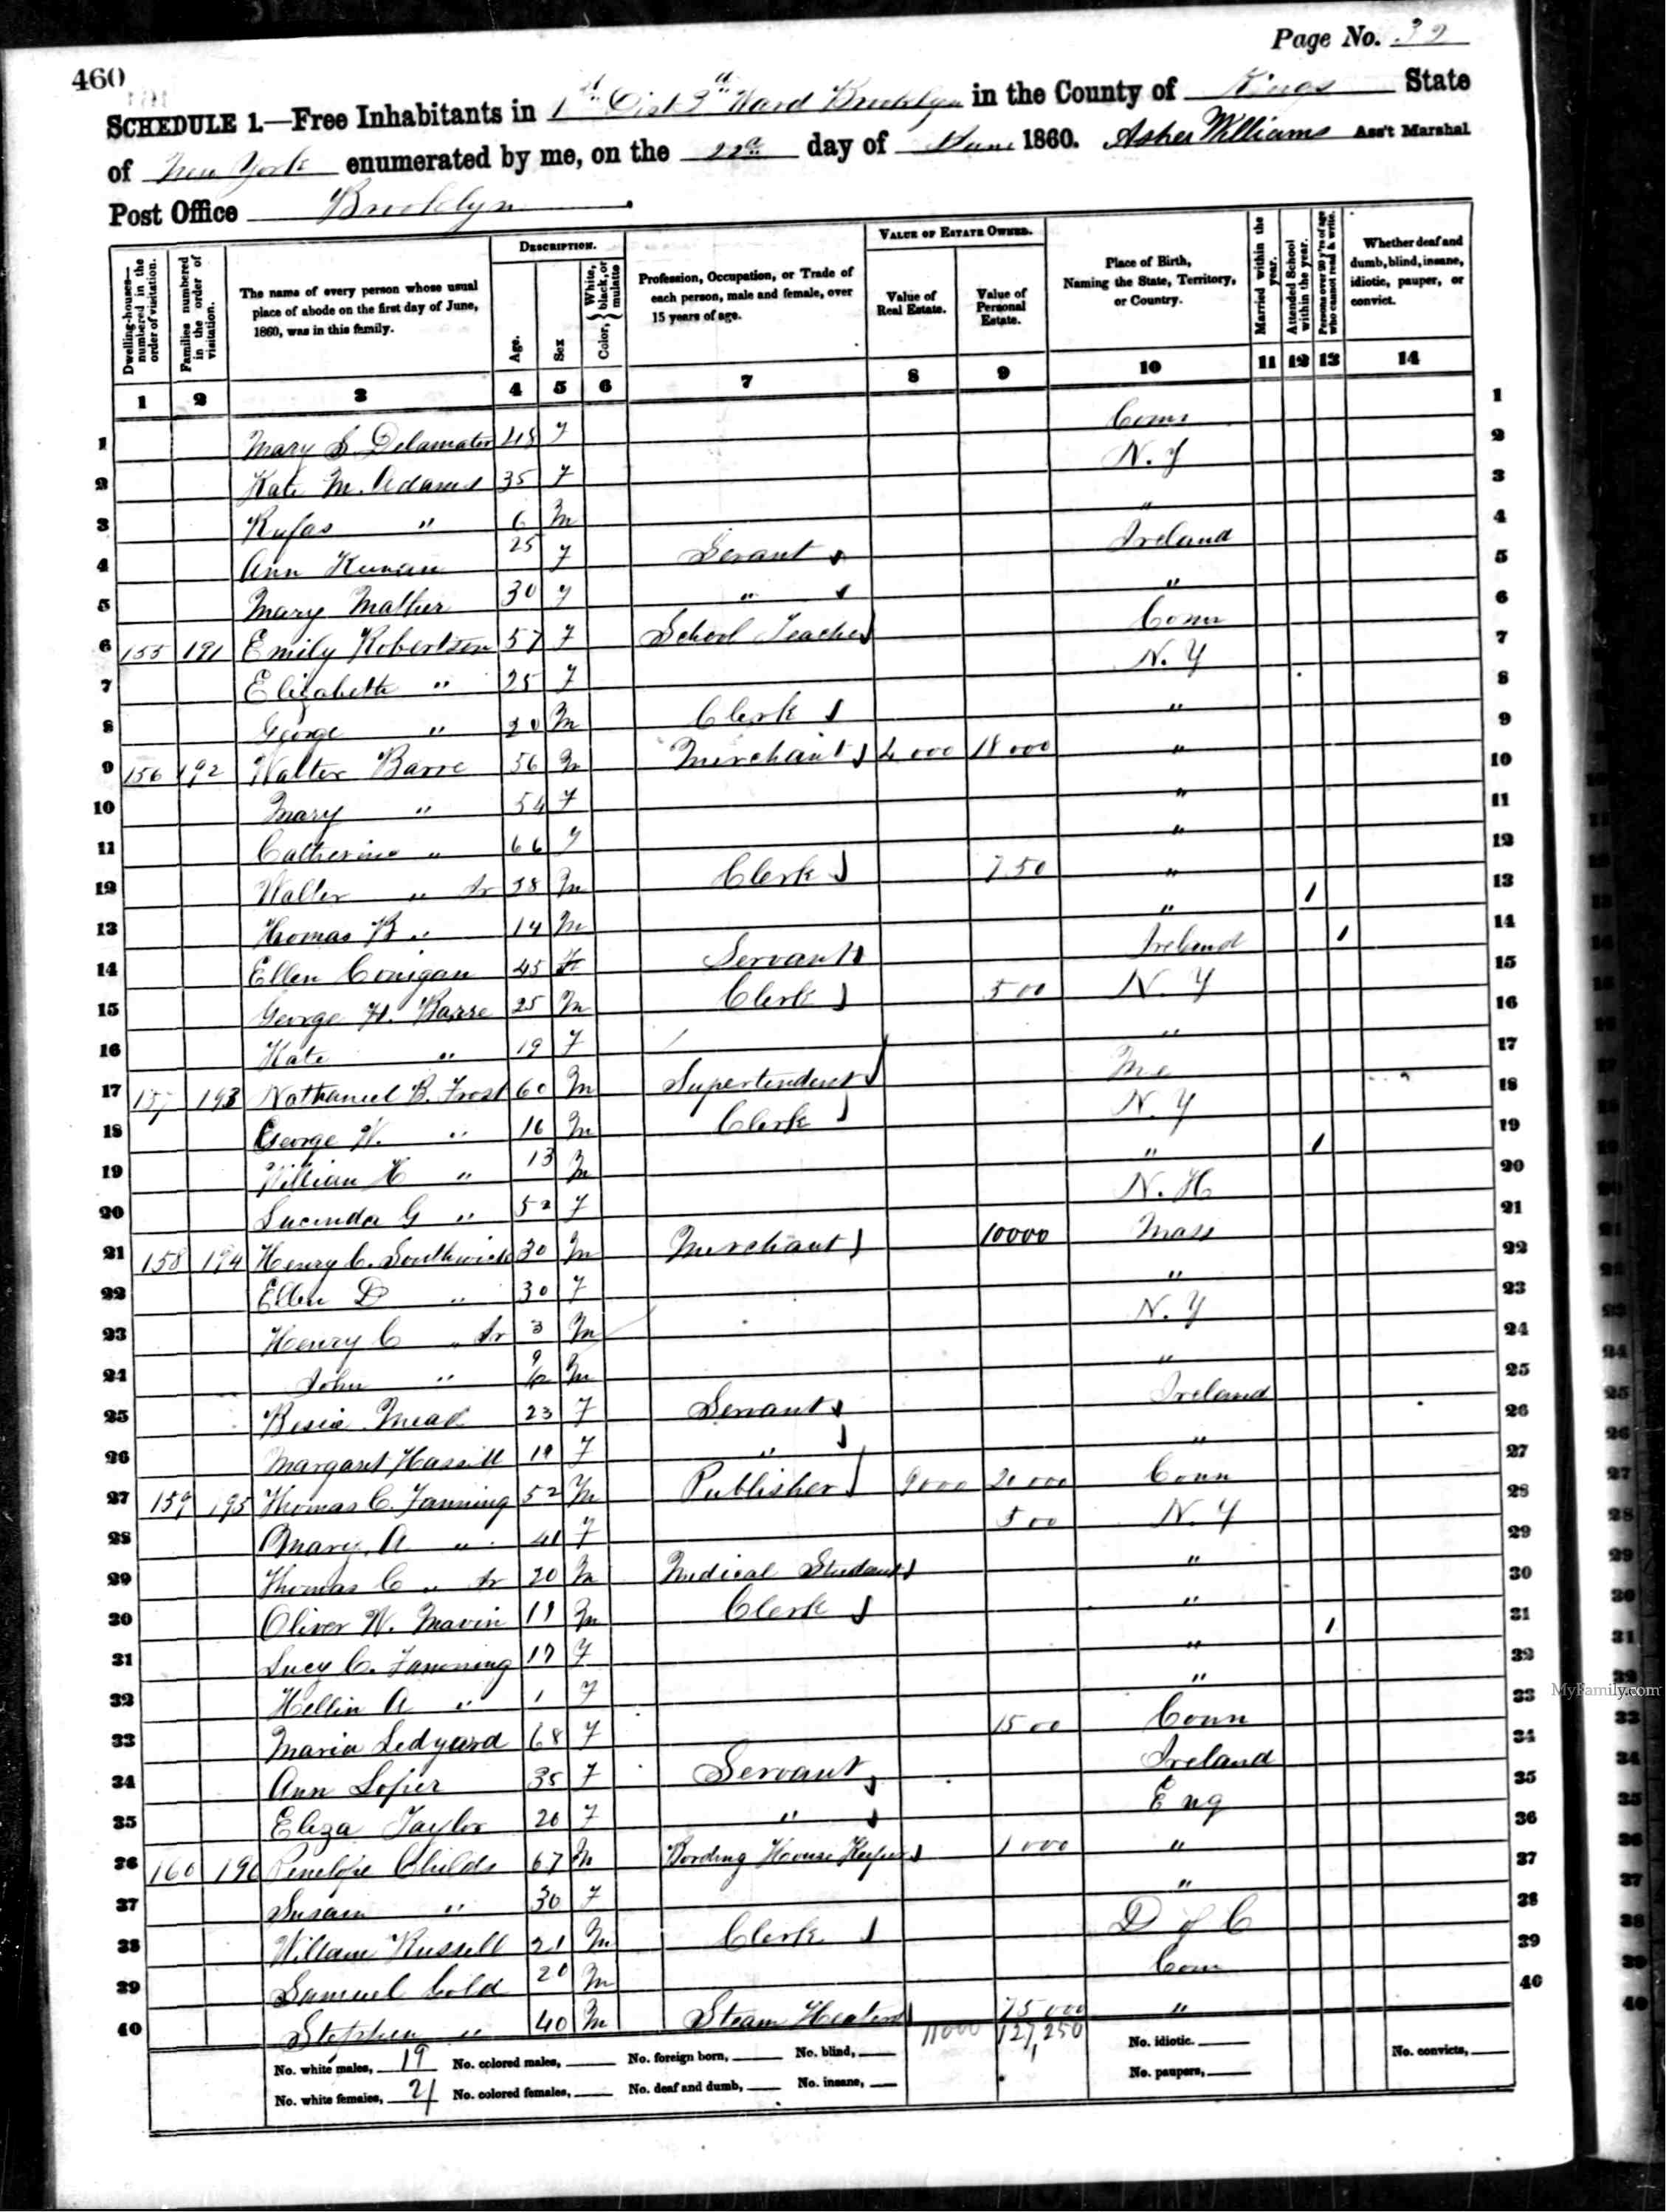 460
Page No. 32
SCHEDULE 1.—Free Inhabitants in 1st Dist 3d Ward Brooklyn in the County of Kings State
of New York enumerated by me, on the 22d day of June 1860. Asher Williams Ass't Marshal
Post Office Brooklyn
Dwelling-houses—numbered in the order of visitation.
Families numbered in the order of visitation.
The name of every person whose usual place of abode on the first day of June, 1860, was in this family.
DESCRIPTION.
Age.
Sex
Color, White, black, or mulatto
Profession, Occupation, or Trade of each person, male and female, over 15 years of age.
VALUE OF ESTATE OWNED.
Value of Real Estate.
Value of Personal Estate.
Place of Birth, Naming the State, Territory, or Country.
Married within the year.
Attended School within the year.
Persons over 20 y'rs of age who cannot read & write.
Whether deaf and dumb, blind, insane, idiotic, pauper, or convict.
1 2 3 4 5 6 7 8 9 10 11 12 13 14
1 Mary S. Delamater 48 F Conn 1
2 Kate M. Adams 35 F N. Y 2
3 Rufas " 6 M " 3
4 Ann 25 F Servant Ireland 4
5 Mary Mather 30 F " " 5
6 155 191 Emily Robertson 57 F School Teacher Conn 6
7 Elizabeth " 25 F N. Y 7
8 George " 20 M Clerk " 8
9 156 192 Walter Barre 56 M Merchant 18000 " 9
10 Mary " 54 F " 10
11 Catherine " 66 F " 11
12 Walter " Jr 28 M Clerk 750 " 12
13 Thomas B " 14 M " 1 13
14 Ellen Conigan 45 F Servant Ireland 1 14
15 George H. Barre 25 M Clerk 500 N. Y 15
16 Kate " 19 F " 16
17 157 193 Nathaniel B. Frost 60 M Supertendent Me 17
18 George W. " 16 M Clerk N. Y 18
19 William H " 13 M " 1 19
20 Lucinda G " 52 F N. H 20
21 158 194 Henry C. Southwick 30 M Merchant 10000 Mass 21
22 Ellen D " 30 F " 22
23 Henry C " Jr 3 M N. Y 23
24 John " 9/12 M " 24
25 Mead 23 F Servant Ireland 25
26 Margaret 19 F " " 26
27 159 195 Thomas C. Fanning 52 M Publisher 9000 20000 Conn 27
28 Mary A " 41 F 500 N. Y 28
29 Thomas C " Jr 20 M Medical Student " 29
30 Oliver W. Mavin 19 M Clerk " 30
31 Lucy C. Fanning 17 F " 1 31
32 Hellin A " 1 F " 32
33 Maria Ledyard 68 F 1500 Conn 33
34 Ann 35 F Servant Ireland 34
35 Eliza Taylor 20 F " Eng 35
36 160 196 Penelope Childs 67 M Bording House Keeper 1000 " 36
37 Susan " 30 F " 37
38 William Russell 21 M Clerk D of C 38
39 Samuel Gold 20 M Conn 39
40 Stephen " 40 M Steam Heaters 75000 " 40
11000 127,250
No. white males, 19 No. colored males, No. foreign born, No. blind, No. idiotic. No. convicts,
No. white females, 21 No. colored females, No. deaf and dumb, No. insane, No. paupers,
MyFamily.com